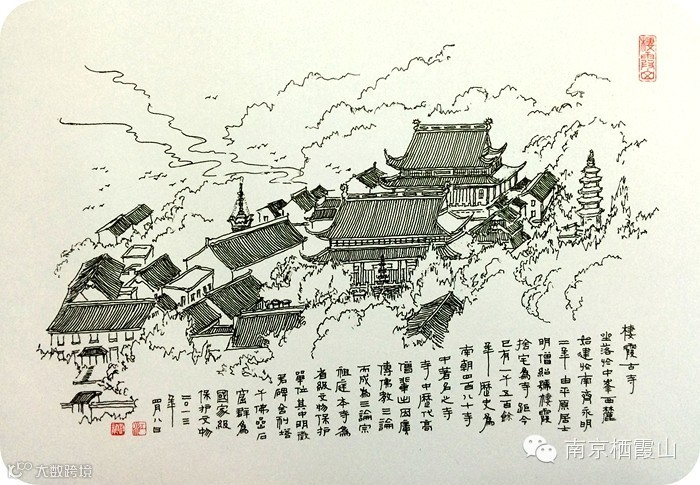 棲霞山
棲霞古寺
坐落於中峯西麓
始建於南齊永明
二年 由平原居士
明僧紹將棲霞
捨宅為寺 距今
已有一千五百餘
年 歷史為
南朝四百八十寺
中著名之寺
寺中歷代高
僧輩出因廣
傳佛教三論
而成為三論宗
祖庭本寺為
省級文物保护
單位其中明徵
君碑舍利塔
千佛嵒石
窟群為
國家級
保护文物
二〇一三
年
四月八日
大数跨境
南京栖霞山